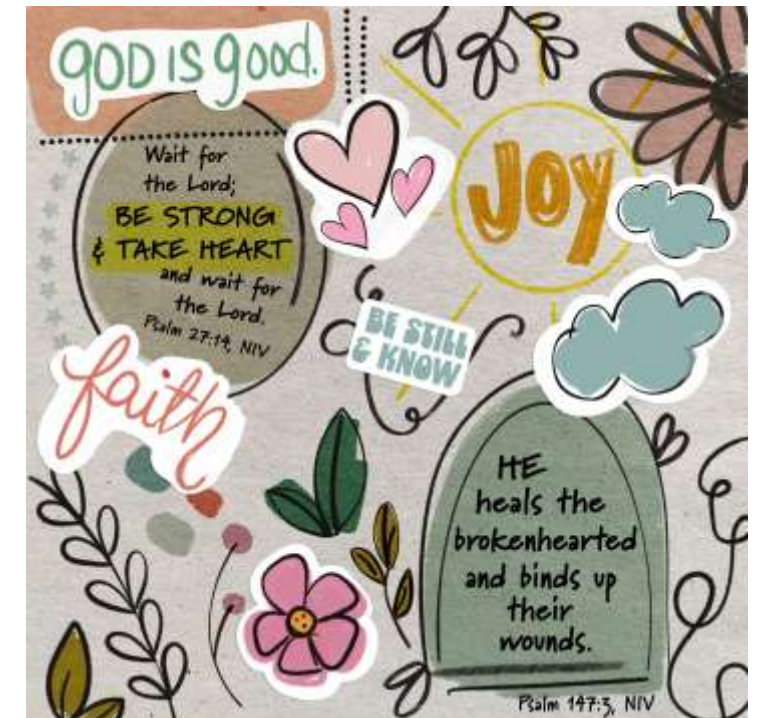 gOD IS good.
Wait for
the Lord;
BE STRONG
& TAKE HEART
and wait for
the Lord.
Psalm 27:14, NIV
Joy
BE STILL
& KNOW
faith
HE
heals the
brokenhearted
and binds up
their
wounds.
Psalm 147:3, NIV